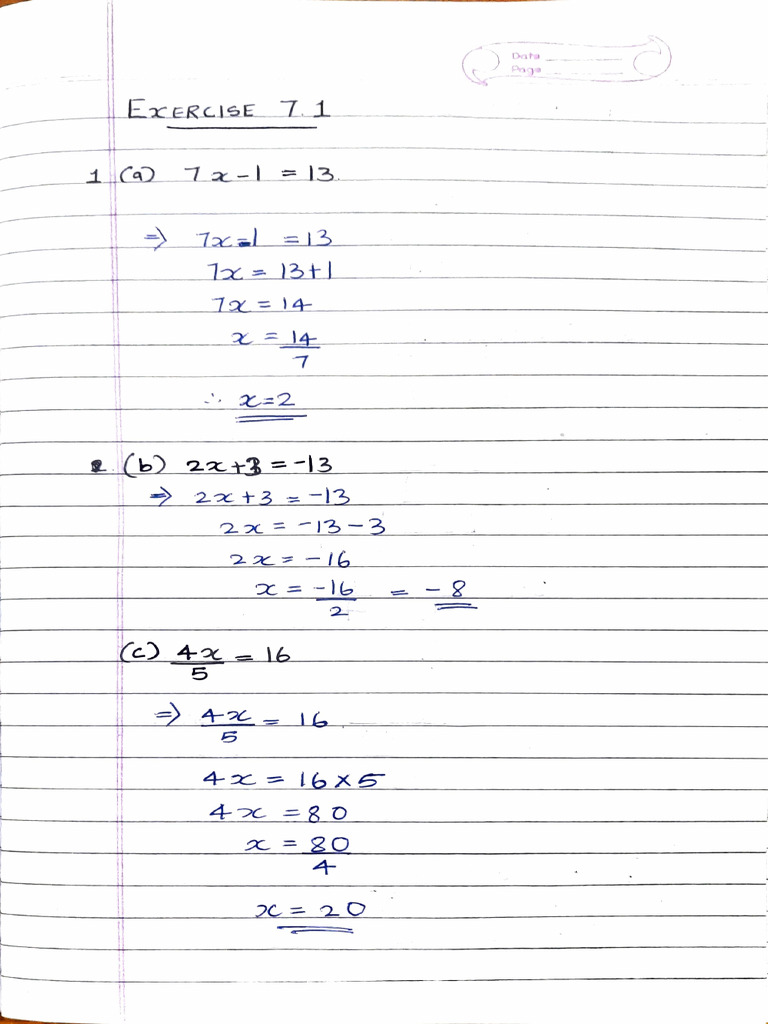 Date
Page
EXERCISE 7.1
1 (a) 7x-1 = 13.
⇒ 7x-1 = 13
7x = 13+1
7x = 14
x = 14/7
∴ x=2
(b) 2x+3 = -13
⇒ 2x+3 = -13
2x = -13-3
2x = -16
x = -16/2 = -8
(c) 4x/5 = 16
⇒ 4x/5 = 16
4x = 16×5
4x = 80
x = 80/4
x = 20